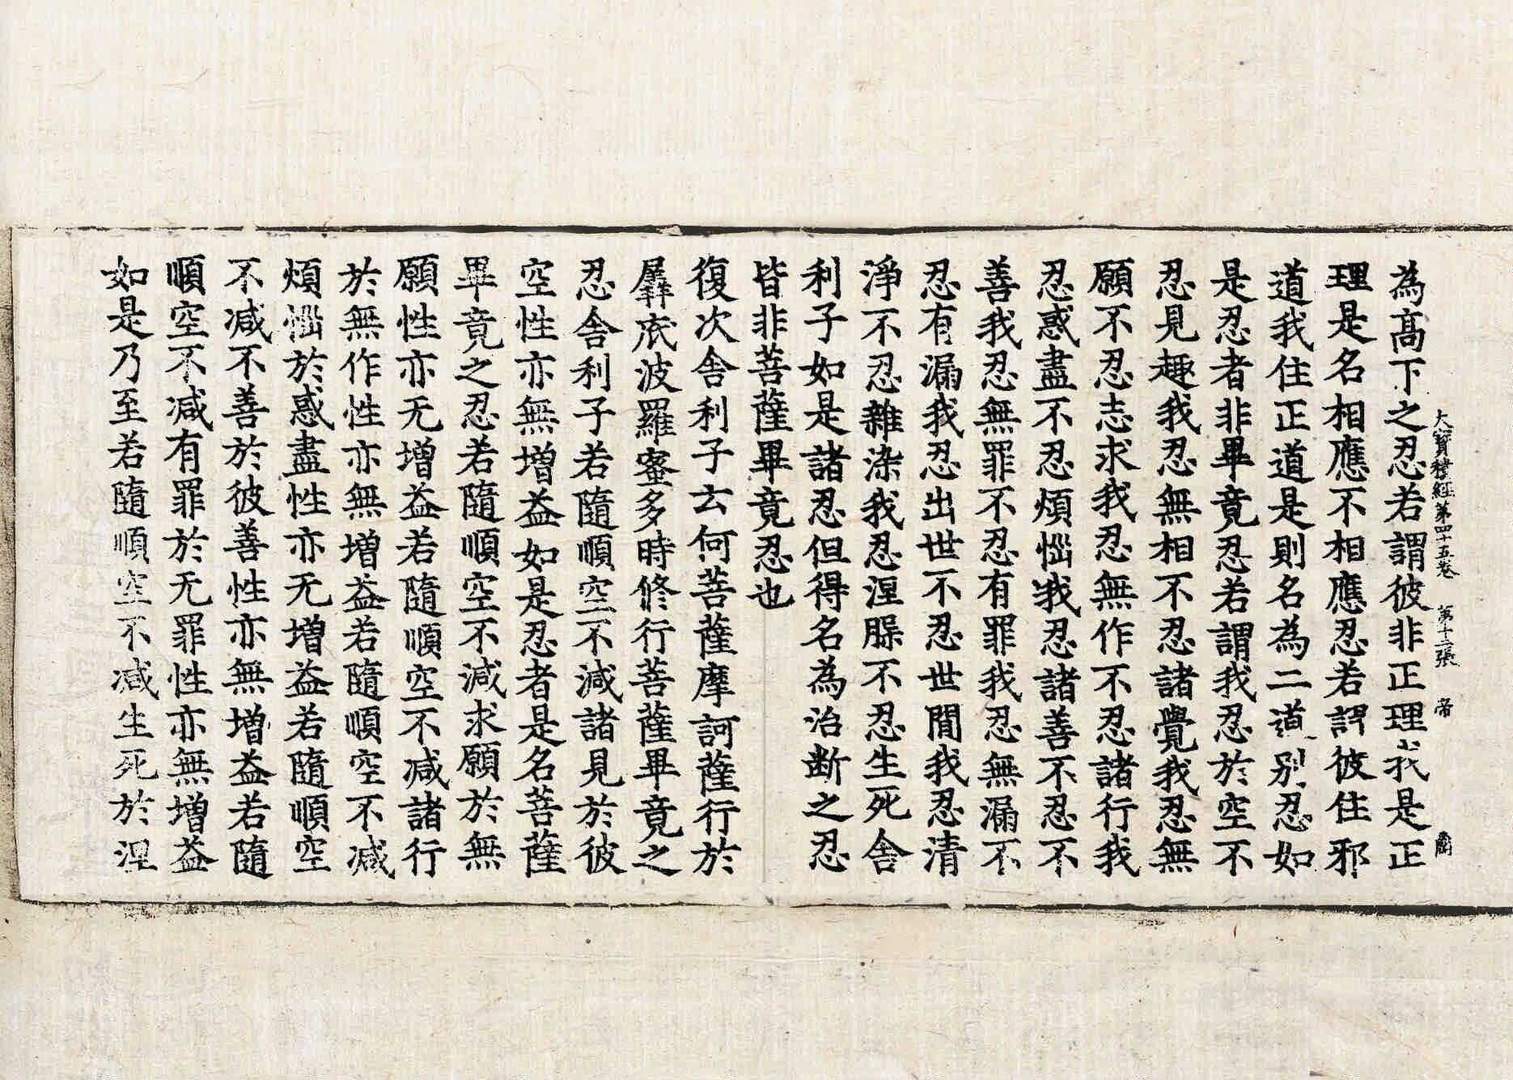 大寶積經第四十五卷 第十三張 帝
為高下之忍若謂彼非正理我是正
理是名相應不相應忍若謂彼住邪
道我住正道是則名為二道別忍如
是忍者非畢竟忍若謂我忍於空不
忍見趣我忍無相不忍諸覺我忍無
願不忍志求我忍無作不忍諸行我
忍惑盡不忍煩惱我忍諸善不忍不
善我忍無罪不忍有罪我忍無漏不
忍有漏我忍出世不忍世間我忍清
淨不忍雜染我忍涅槃不忍生死舍
利子如是諸忍但得名為治断之忍
皆非菩薩畢竟忍也
復次舍利子云何菩薩摩訶薩行於
羼底波羅蜜多時修行菩薩畢竟之
忍舍利子若隨順空不減諸見於彼
空性亦無增益如是忍者是名菩薩
畢竟之忍若隨順空不減求願於無
願性亦无增益若隨順空不减諸行
於無作性亦無增益若隨順空不减
煩惱於惑盡性亦无增益若隨順空
不减不善於彼善性亦無增益若隨
順空不减有罪於无罪性亦無增益
如是乃至若隨順空不减生死於涅